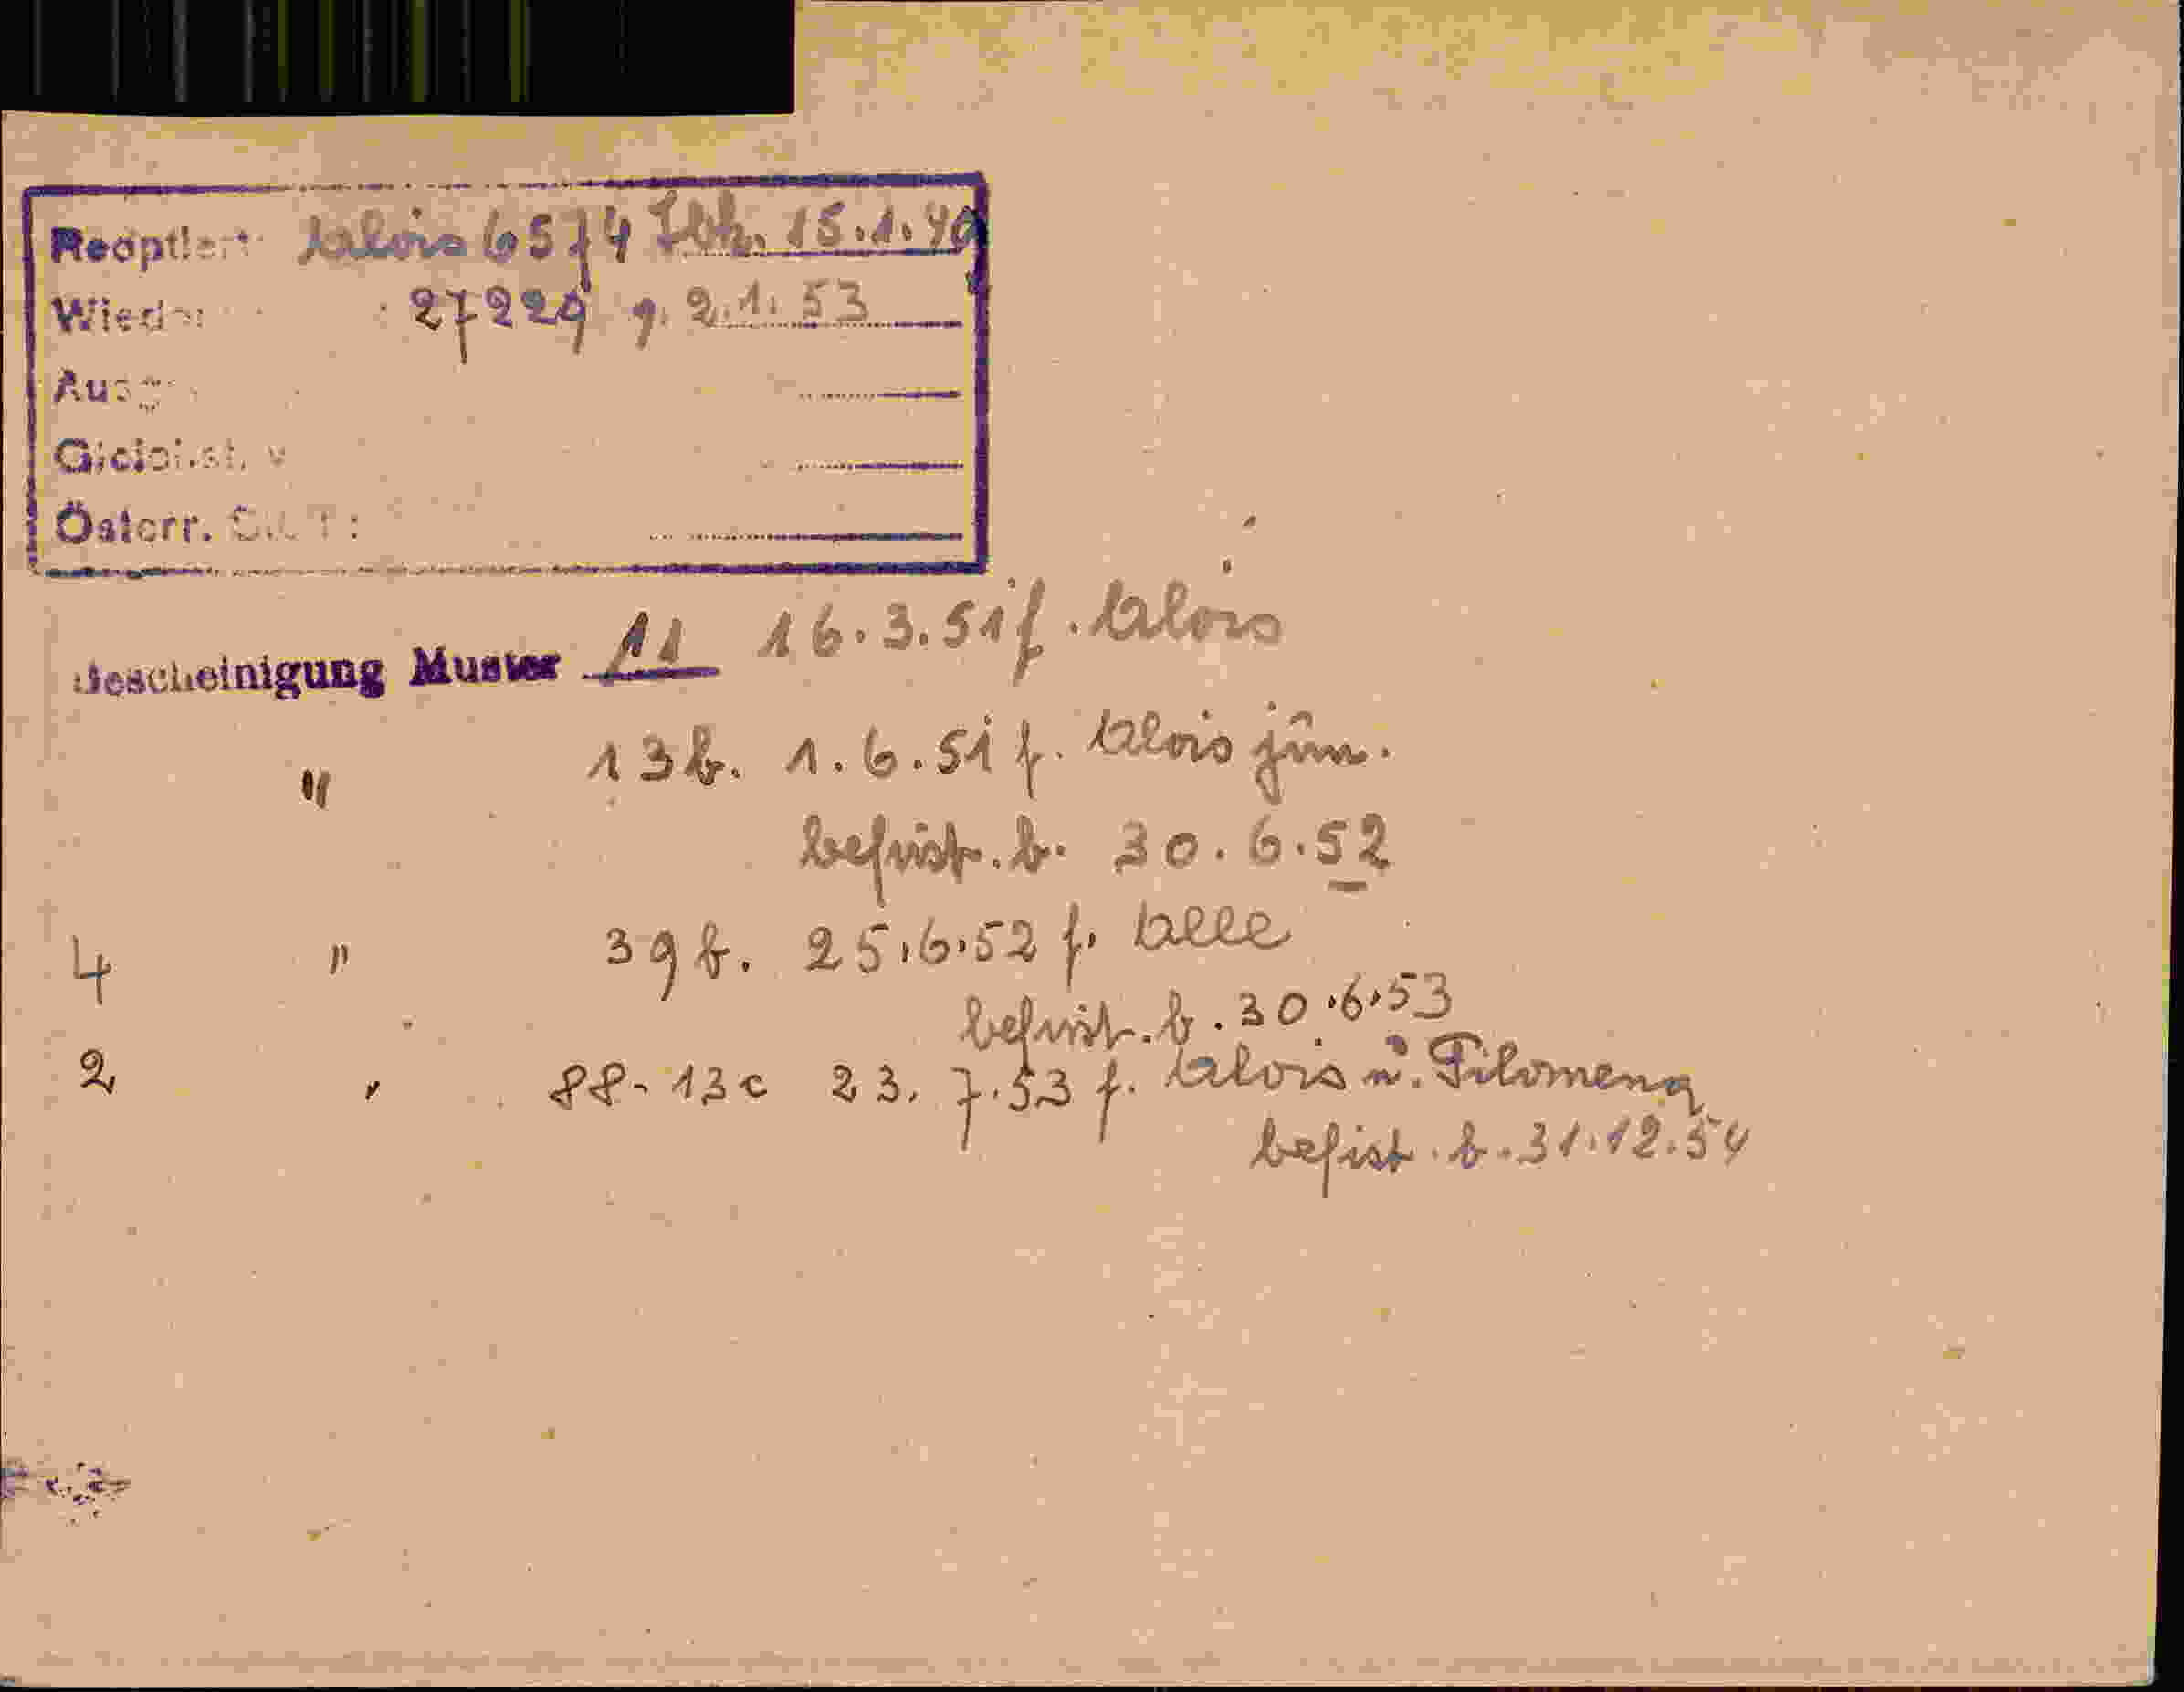 Reoptiert Alois 6574 Ibk. 15.1.49
Wieder : 27229 g. 2.1.53
Ausg
Gleichst. v
Österr. :
Bescheinigung Muster 11 16.3.51 f. Alois
" 13b. 1.6.51 f. Alois jun.
befrist. b. 30.6.52
4 " 39b. 25.6.52 f. Alle
befrist. b. 30.6.53
2 " 88-13c 23.7.53 f. Alois u. Filomena
befist. b. 31.12.54